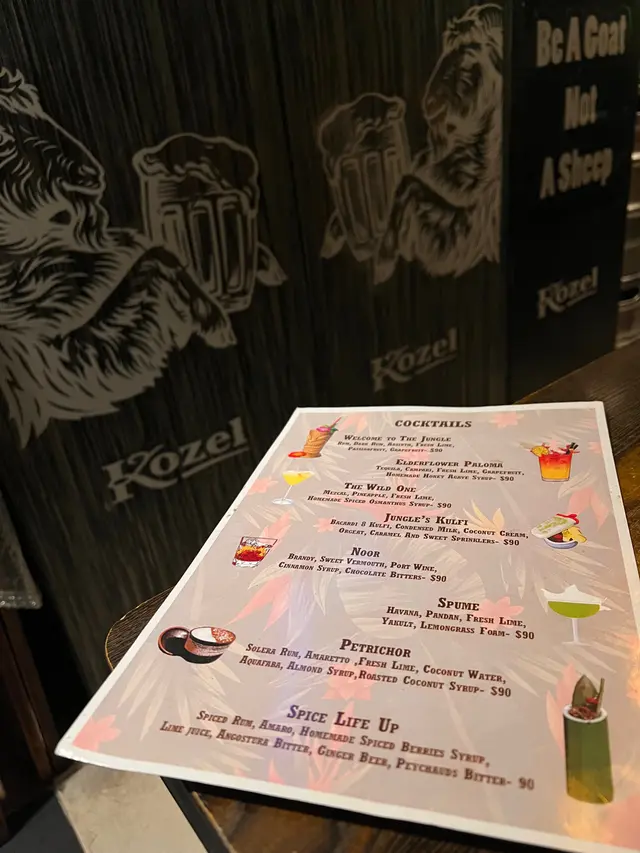 Be A Goat
Not
A Sheep
Kozel
Kozel
Kozel
COCKTAILS
WELCOME TO THE JUNGLE
RUM, DARK RUM, ABSINTH, FRESH LIME,
PASSIONFRUIT, GRAPEFRUIT- $90
ELDERFLOWER PALOMA
TEQUILA, CAMPARI, FRESH LIME, GRAPEFRUIT,
HOMEMADE HONEY AGAVE SYRUP- $90
THE WILD ONE
MEZCAL, PINEAPPLE, FRESH LIME,
HOMEMADE SPICED OSMANTHUS SYRUP- $90
JUNGLE'S KULFI
BACARDI 8 KULFI, CONDENSED MILK, COCONUT CREAM,
ORGEAT, CARAMEL AND SWEET SPRINKLERS- $90
NOOR
BRANDY, SWEET VERMOUTH, PORT WINE,
CINNAMON SYRUP, CHOCOLATE BITTERS- $90
SPUME
HAVANA, PANDAN, FRESH LIME,
YAKULT, LEMONGRASS FOAM- $90
PETRICHOR
SOLERA RUM, AMARETTO ,FRESH LIME, COCONUT WATER,
AQUAFABA, ALMOND SYRUP,ROASTED COCONUT SYRUP- $90
SPICE LIFE UP
SPICED RUM, AMARO, HOMEMADE SPICED BERRIES SYRUP,
LIME JUICE, ANGOSTURA BITTER, GINGER BEER, PEYCHAUDS BITTER- 90